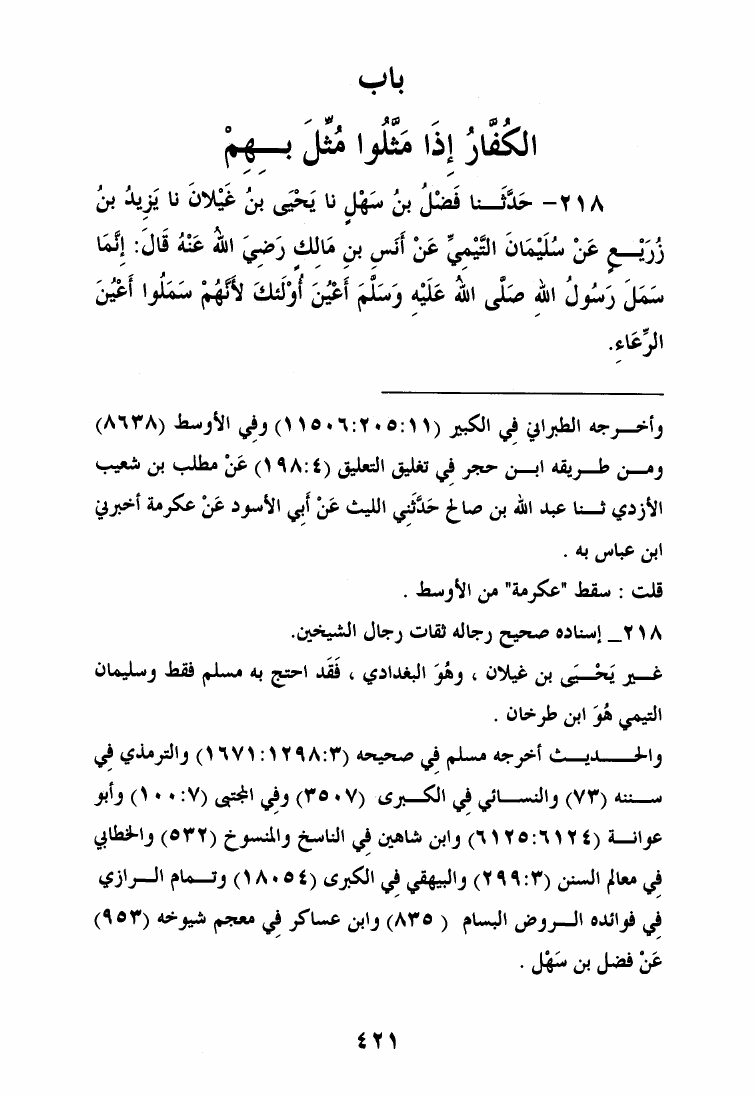 باب
الكُفَّارُ إِذَا مَثَّلُوا مُثِّلَ بِـهِمْ
٢١٨- حَدَّثَـنا فَضْلُ بنُ سَهْلٍ نا يَحْيَى بنُ غَيْلانَ نا يَزِيدُ بنُ
زُرَيْـعٍ عَنْ سُلَيْمَانَ التَّيْمِيِّ عَنْ أَنَسِ بنِ مَالِكٍ رَضِيَ اللهُ عَنْهُ قَالَ: إِنَّمَا
سَمَلَ رَسُولُ اللهِ صَلَّى اللهُ عَلَيْهِ وَسَلَّمَ أَعْيُنَ أُوْلَئكَ لأَنَّهُمْ سَمَلُوا أَعْيُنَ
الرِّعَاءِ.
وأخـرجه الطبراني فِي الكبير (١١٥٠٦:٢٠٥:١١) وفِي الأوسط (٨٦٣٨)
ومـن طـريقه ابـن حجر فِي تغليق التعليق (١٩٨:٤) عَنْ مطلب بن شعيب
الأزدي ثـنا عبد الله بن صالح حَدَّثَنِي الليث عَنْ أَبِي الأسود عَنْ عكرمة أخبرنِي
ابن عباس به .
قلت : سقط "عكرمة" من الأوسط .
٢١٨_ إسناده صحيح رجاله ثقات رجال الشيخين.
غـير يَحْـيَى بن غيلان ، وهُوَ البغدادي ، فَقَد احتج به مسلم فقط وسليمان
التيمي هُوَ ابن طرخان .
والحـديـث أخرجه مسلم فِي صحيحه (١٦٧١:١٢٩٨:٣) والترمذي فِي
سـننه (٧٣) والنسـائي فِي الكـبرى (٣٥٠٧) وفِي المجتبى (١٠٠:٧) وأبو
عوانـة (٦١٢٥:٦١٢٤) وابن شاهين فِي الناسخ والمنسوخ (٥٣٢) والخطابي
فِي معالم السنن (٢٩٩:٣) والبيهقي فِي الكبرى (١٨٠٥٤) وتـمام الـرازي
فِي فوائده الـروض البسام ( ٨٣٥) وابن عساكر فِي معجم شيوخه (٩٥٣)
عَنْ فضل بن سَهْل .
٤٢١